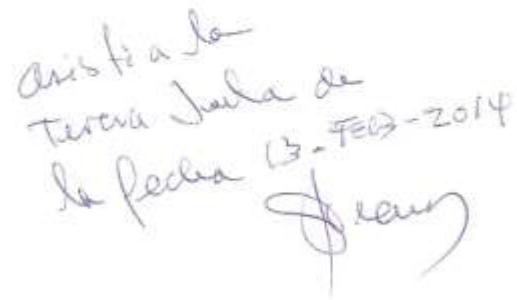 asistí a la
Tercera Junta de
la fecha 13-FEB-2014